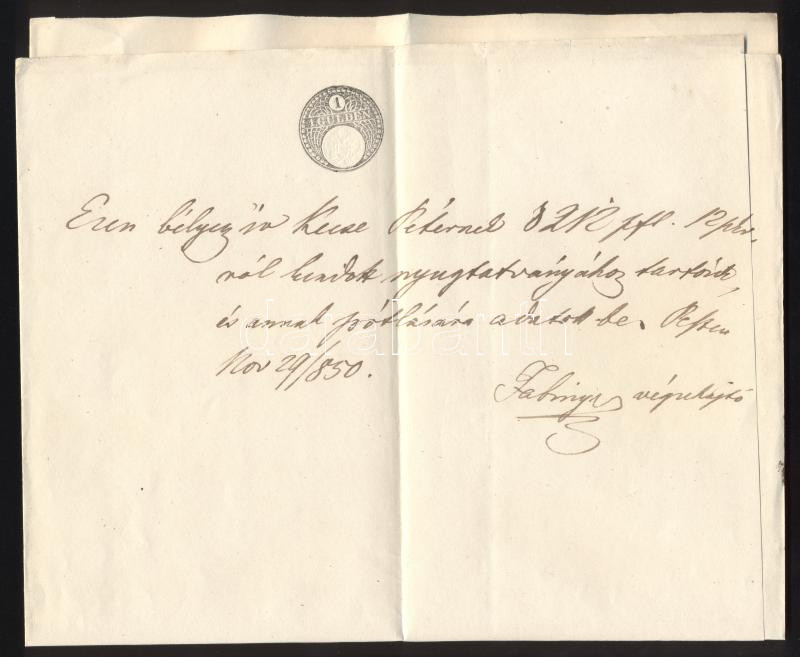 1
1 GULDEN
Ezen bélyeg ív Kecse Péternek 8212 pfl. 12 pkr.
ról kiadott nyugtatványához tartozik,
és annak pótlására adatott be. Pesten
Nov 29/850.
Fabinyi végrehajtó
darabanth